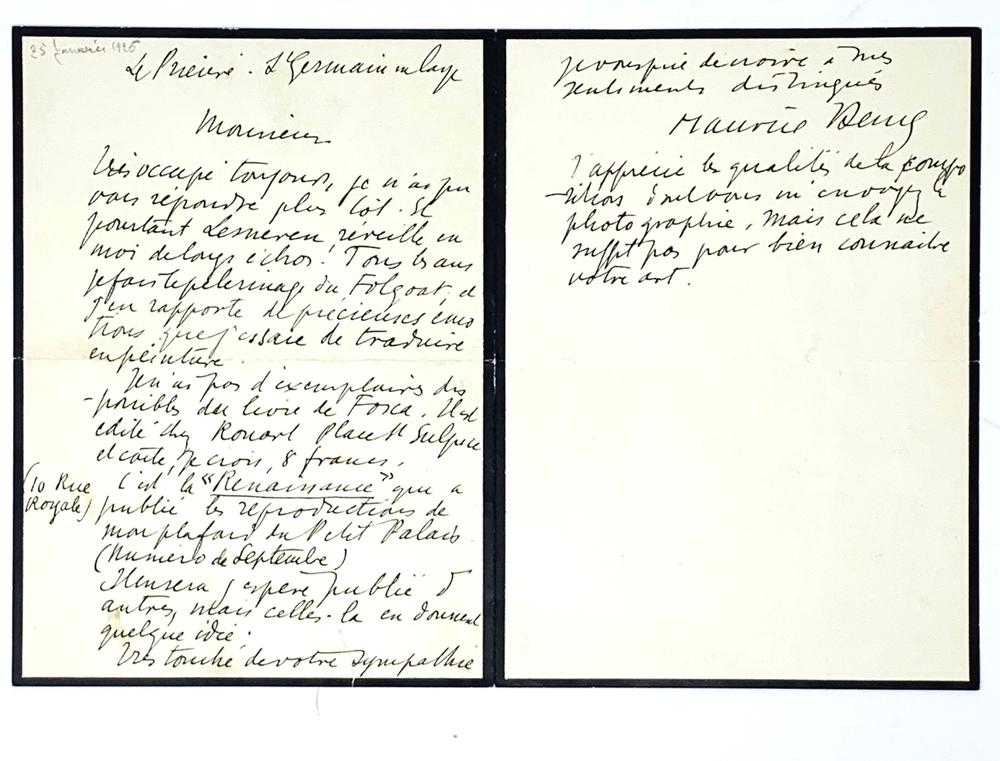 25 Janvier 1926
Le Prieuré. St Germain en Laye
Monsieur
Très occupé toujours, je n'ai pu
vous répondre plus tôt. Et
pourtant Lesneven, réveille en
moi de longs échos! Tous les ans
je fais le pèlerinage du Folgoat, et
j'en rapporte de précieuses émo
tions que j'essaie de traduire
en peinture.
Je n'ai pas d'exemplaires dis
-ponibles du livre de Fosca. Il est
édité chez Rouart Place St Sulpice
et coûte, je crois, 8 francs.
C'est la "Renaissance" que a
(10 Rue
Royale)
publié les reproductions de
mon plafond du Petit Palais
(Numéro de Septembre)
Il en sera j'espère publié d'
autres, mais celles-la en donnent
quelque idée.
Très touché de votre sympathie
je vous prie de croire à mes
sentiments distingués
Maurice Denis
J'apprécie les qualités de la compo
-sition dont vous m'envoyez la
photographie, mais cela ne
suffit pas pour bien connaître
votre art.